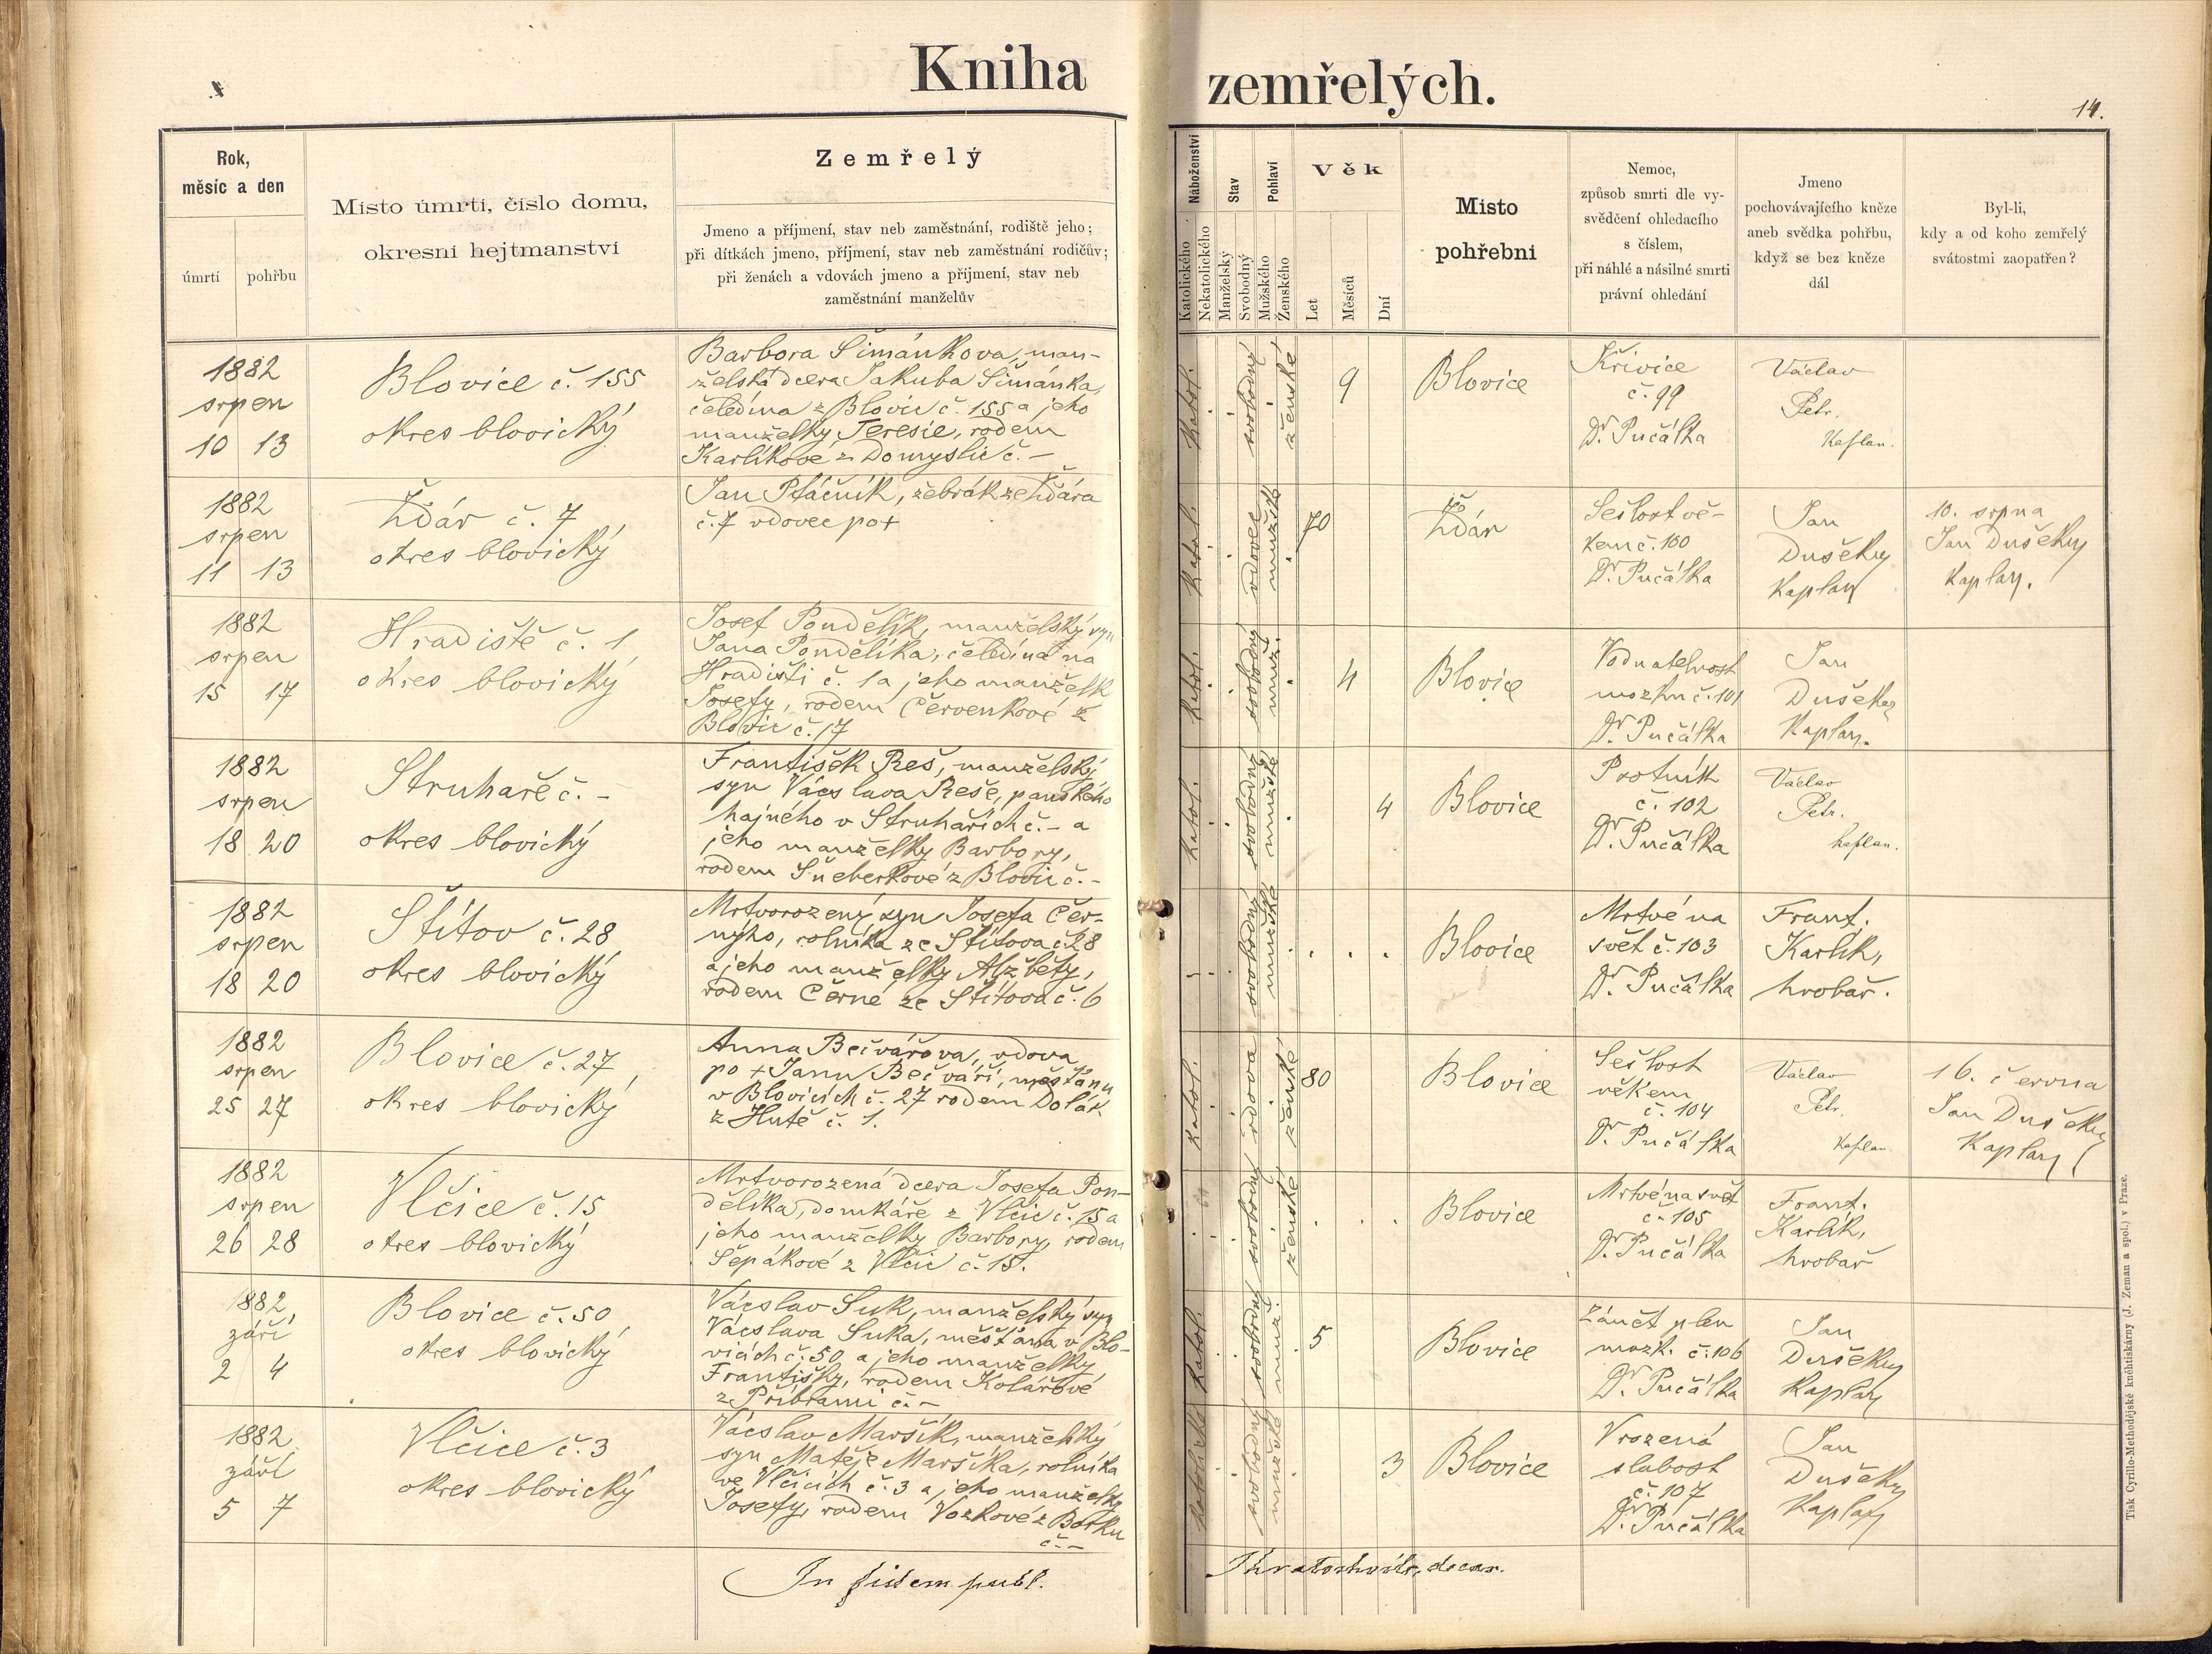 Kniha zemřelých.
14.
Rok,
měsíc a den
úmrtí
pohřbu
Místo úmrtí, číslo domu,
okresní hejtmanství
Zemřelý
Jmeno a příjmení, stav neb zaměstnání, rodiště jeho;
při dítkách jmeno, příjmení, stav neb zaměstnání rodičův;
při ženách a vdovách jmeno a příjmení, stav neb
zaměstnání manželův
Náboženství
Katolického
Nekatolického
Stav
Manželský
Svobodný
Pohlaví
Mužského
Ženského
Věk
Let
Měsíců
Dní
Místo
pohřební
Nemoc,
způsob smrti dle vy-
svědčení ohledacího
s číslem,
při náhlé a násilné smrti
právní ohledání
Jmeno
pochovávajícího kněze
aneb svědka pohřbu,
když se bez kněze
dál
Byl-li,
kdy a od koho zemřelý
svátostmi zaopatřen?
1882
srpen
10 13
Blovice č. 155
okres blovický
Barbora Šimánkova, man-
želská dcera Jakuba Šimánka,
čeledína z Blovic č. 155 a jeho
manželky Teresie, rodem
Karlíkové z Domyslic č. –
Katol.
svobodný
ženské
9
Blovice
Křivice
č. 99
Dr. Pučálka
Václav
Petr.
Kaplan.
1882
srpen
11 13
Ždár č. 7
okres blovický
Jan Ptáčník, žebrák ze Ždára
č. 7 vdovec po +
Katol.
vdovec
mužské
70
Ždár
Sešlost vě-
kem č. 100
Dr. Pučálka
Jan
Dušek
kaplan
10. srpna
Jan Dušek
kaplan.
1882
srpen
15 17
Hradiště č. 1
okres blovický
Josef Pondělík, manželský syn
Jana Pondělíka, čeledína na
Hradišti č. 1 a jeho manželk
Josefy, rodem Červenkové z
Blovic č. 17
Katol.
svobodný
muž.
4
Blovice
Vodnatelnost
mozku č. 101
Dr. Pučálka
Jan
Dušek
Kaplan.
1882
srpen
18 20
Struhaře č. –
okres blovický
František Reš, manželský
syn Vácslava Reše, panského
hajného v Struhařích č. – a
jeho manželky Barbory,
rodem Šneberkové z Blovic č. –
Katol.
svobodný
mužské
4
Blovice
Psotník
č. 102
Dr. Pučálka
Václav
Petr.
kaplan.
1882
srpen
18 20
Štítov č. 28
okres blovický
Mrtvorozený syn Josefa Čer-
nýho, rolníka ze Štítova č. 28
a jeho manželky Alžběty,
rodem Černé ze Štítova č. 6
svobodný
mužské
Blovice
Mrtvé na
svět č. 103
Dr. Pučálka
Frant.
Karlík,
hrobař.
1882
srpen
25 27
Blovice č. 27
okres blovický
Anna Bečvářova, vdova
po + Janu Bečváři, měšťanu
v Blovicích č. 27 rodem Dolák
z Hutě č. 1.
Katol.
vdova
ženské
80
Blovice
Sešlost
věkem
č. 104
Dr. Pučálka
Václav
Petr.
Kaplan
16. června
Jan Dušek
Kaplan
1882
srpen
26 28
Vlčice č. 15
okres blovický
Mrtvorozená dcera Josefa Pon-
dělíka, domkáře z Vlčic č. 15 a
jeho manželky Barbory, rodem
Šepákové z Vlčic č. 15.
svobodný
ženské
Blovice
Mrtvé na svět
č. 105
Dr. Pučálka
Frant.
Karlík,
hrobař
1882
září
2 4
Blovice č. 50
okres blovický
Vácslav Suk, manželský syn
Vácslava Suka, měšťana v Blo-
vicích č. 50 a jeho manželky
Františky, rodem Kolářové
z Příbrami č. –
Katol.
svobodný
muž.
5
Blovice
Zánět plen
mozk. č. 106
Dr. Pučálka
Jan
Dušek
Kaplan
1882
září
5 7
Vlčice č. 3
okres blovický
Vácslav Maršík, manželský
syn Matěje Maršíka, rolníka
ve Vlčicích č. 3 a jeho manželky
Josefy, rodem Vozkové z Borku
č. –
Katolické
svobodný
mužské
3
Blovice
Vrozená
slabost
č. 107
Dr. Pučálka
Jan
Dušek
Kaplan
In fidem publ.
Tisk Cyrillo-Methodějské knihtiskárny (J. Zeman a spol.) v Praze.